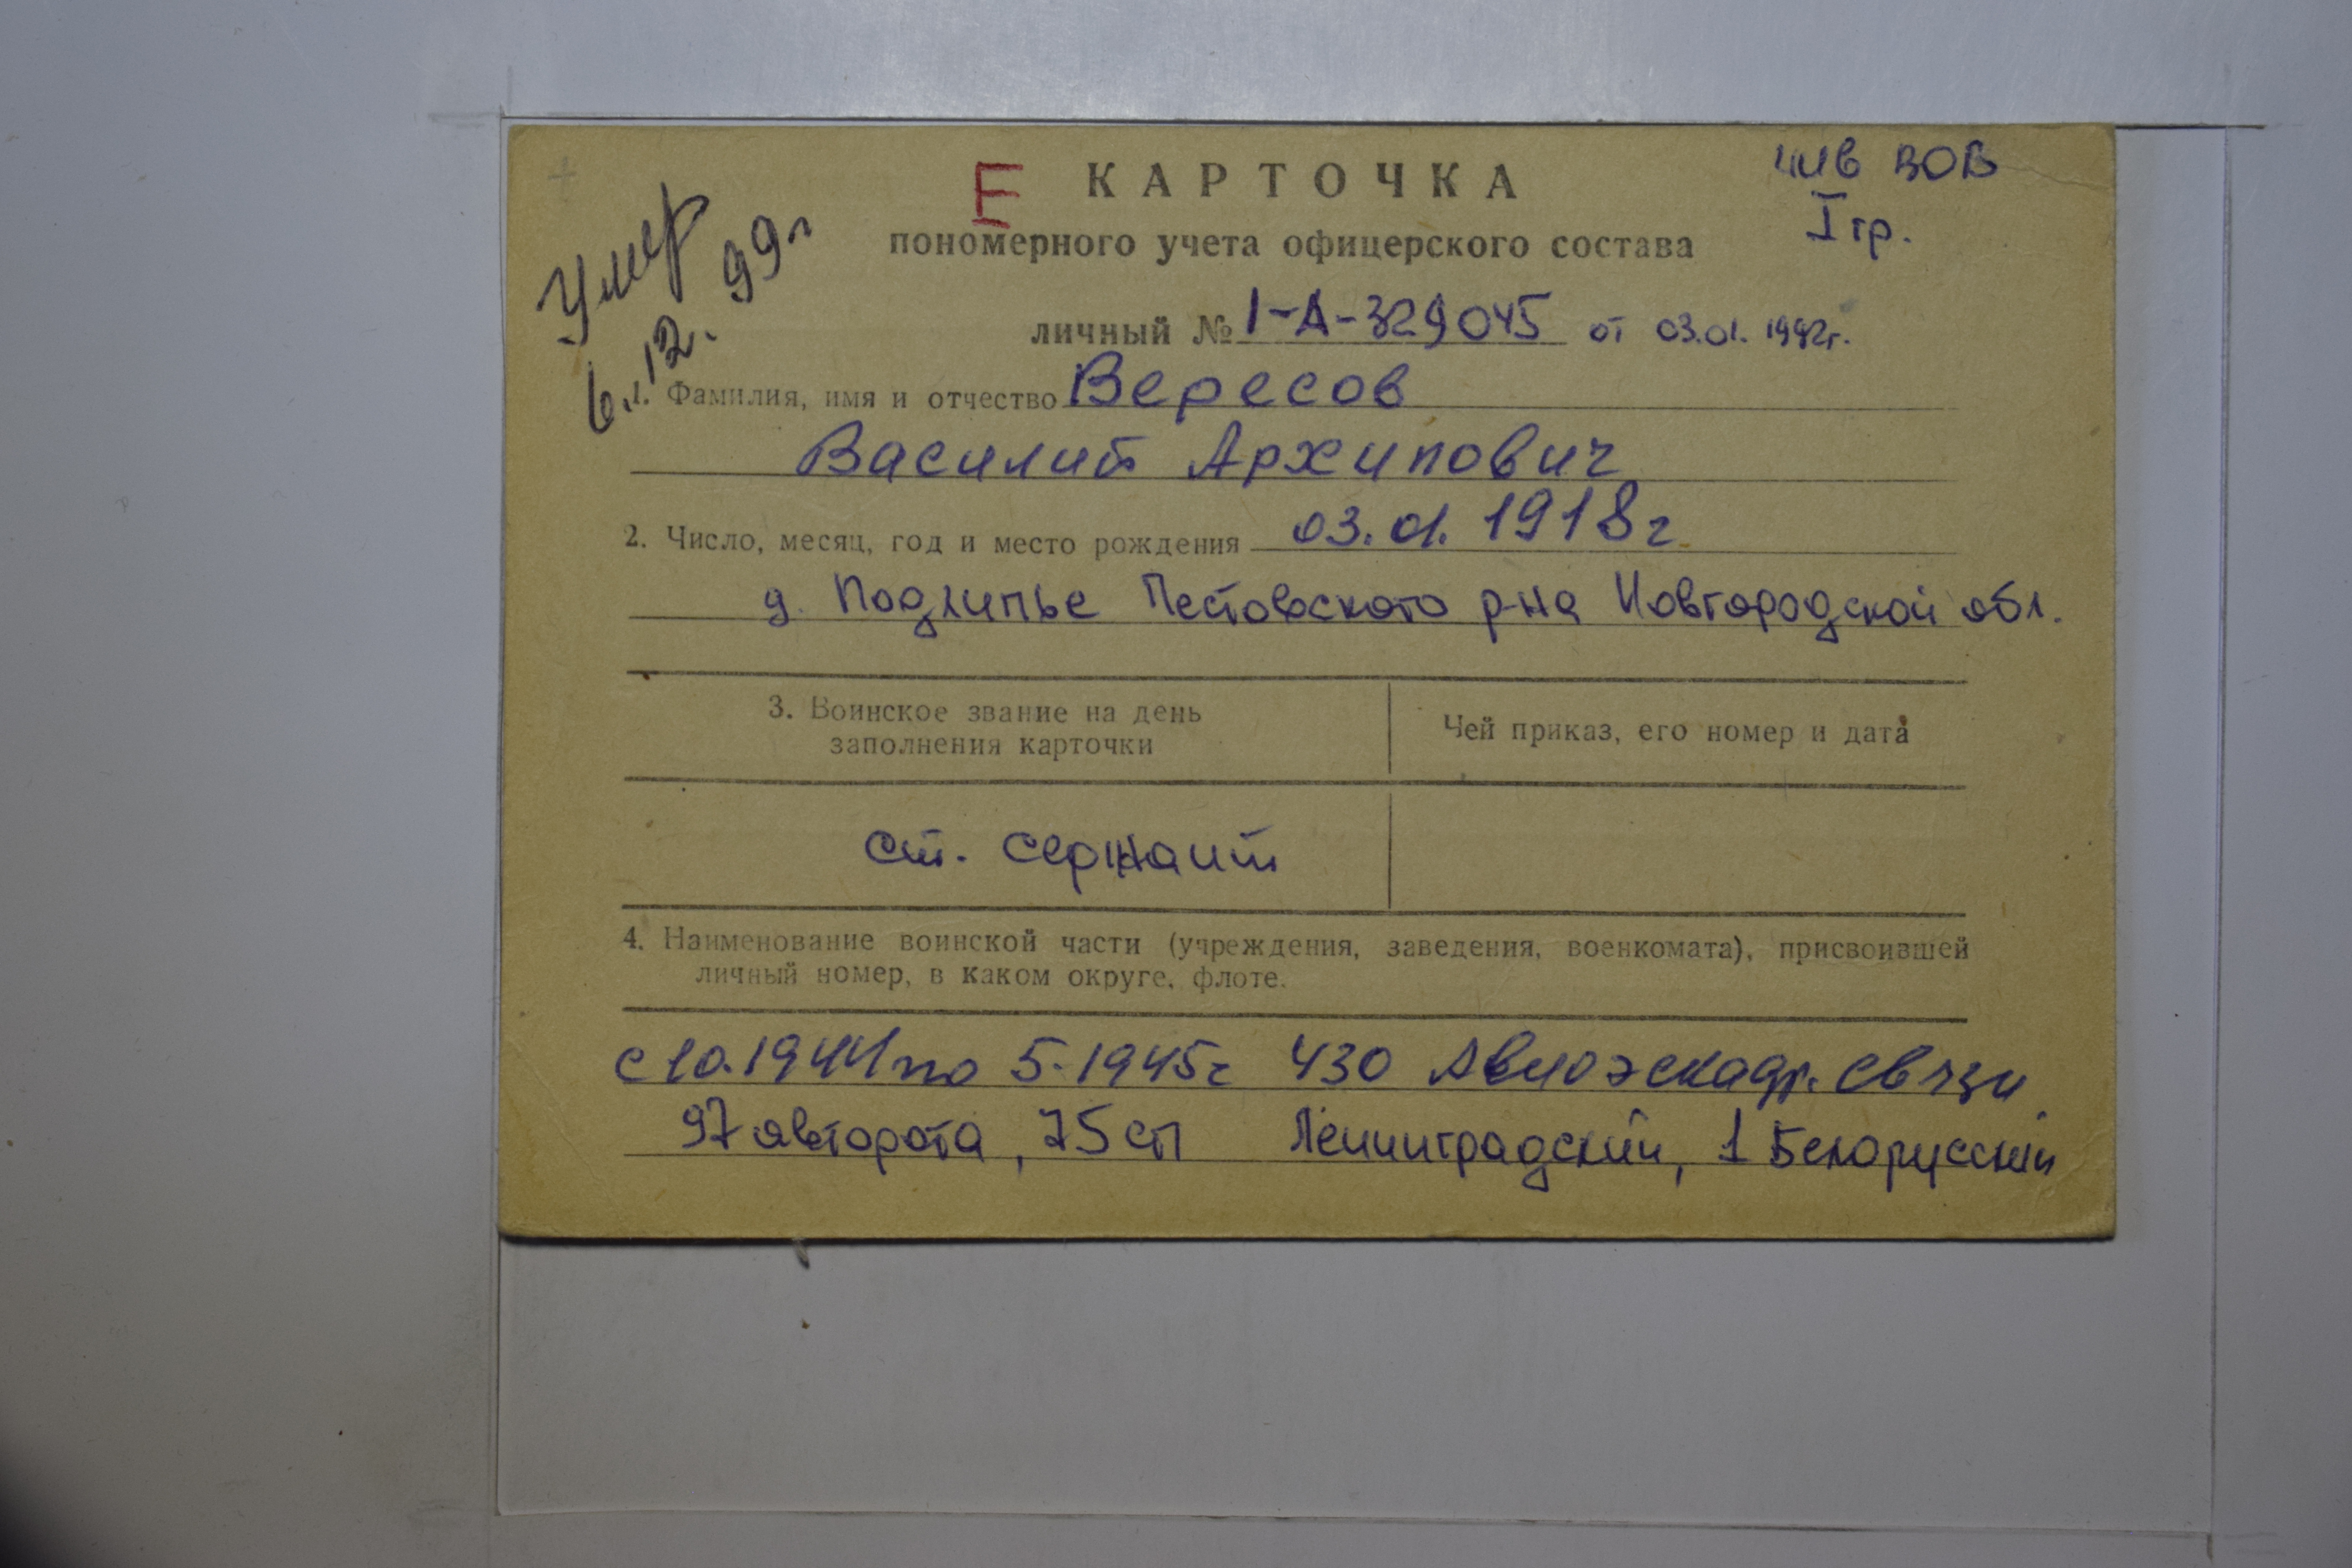 Е КАРТОЧКА
инв ВОВ
I гр.
пономерного учета офицерского состава
Умер
6.12.99г
личный № I-А-329045 от 03.01.1992г.
1. Фамилия, имя и отчество Вересов
Василий Архипович
2. Число, месяц, год и место рождения 03.01.1918г
д. Подлипье Пестовского р-на Новгородской обл.
3. Воинское звание на день
заполнения карточки
Чей приказ, его номер и дата
ст. сержант
4. Наименование воинской части (учреждения, заведения, военкомата), присвоившей
личный номер, в каком округе, флоте.
с 10.1941 по 5.1945г 430 Авиоэскадр. связи
97 авторота, 75 сп Ленинградский, 1 Белорусский